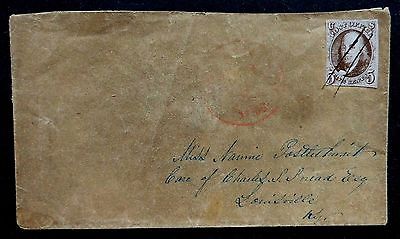 POST OFFICE
5 5
Miss Nannie Postlethwait
Care of Charles S. Snead Esq
Louisville
Ky.